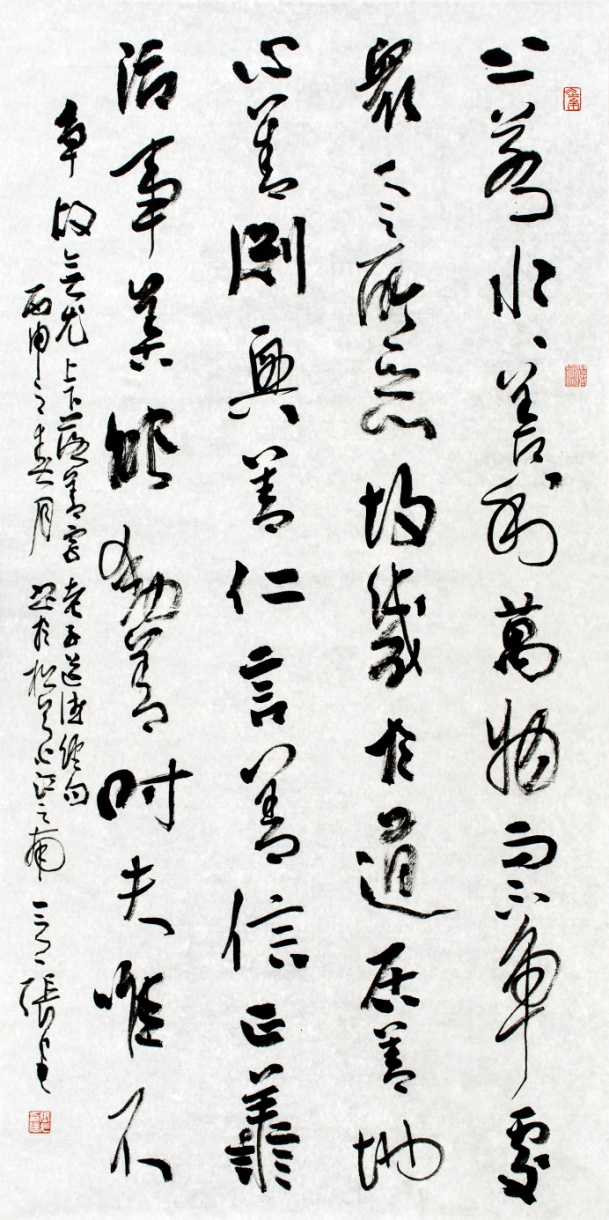 上若水、善利萬物而不争處
衆人之所惡故幾於道居善地
心善淵與善仁言善信正譱
治事善能動善時夫唯不
争故無尤 上下落善字 老子道德經句
丙申之春月 書於松 江之南 張